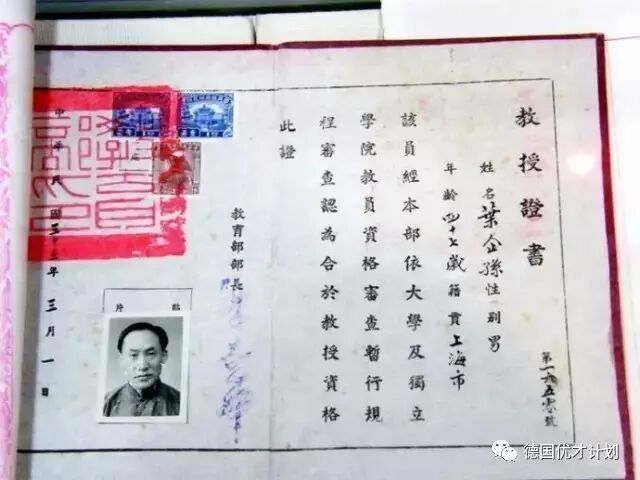 教授證書
姓名葉企孫性別男
年齡四十七歲籍貫上海市
該員經本部依大學及獨立
學院教員資格審查暫行規
程審查認為合於教授資格
此證
教育部部長
中華民國三十三年三月一日
德国优才计划